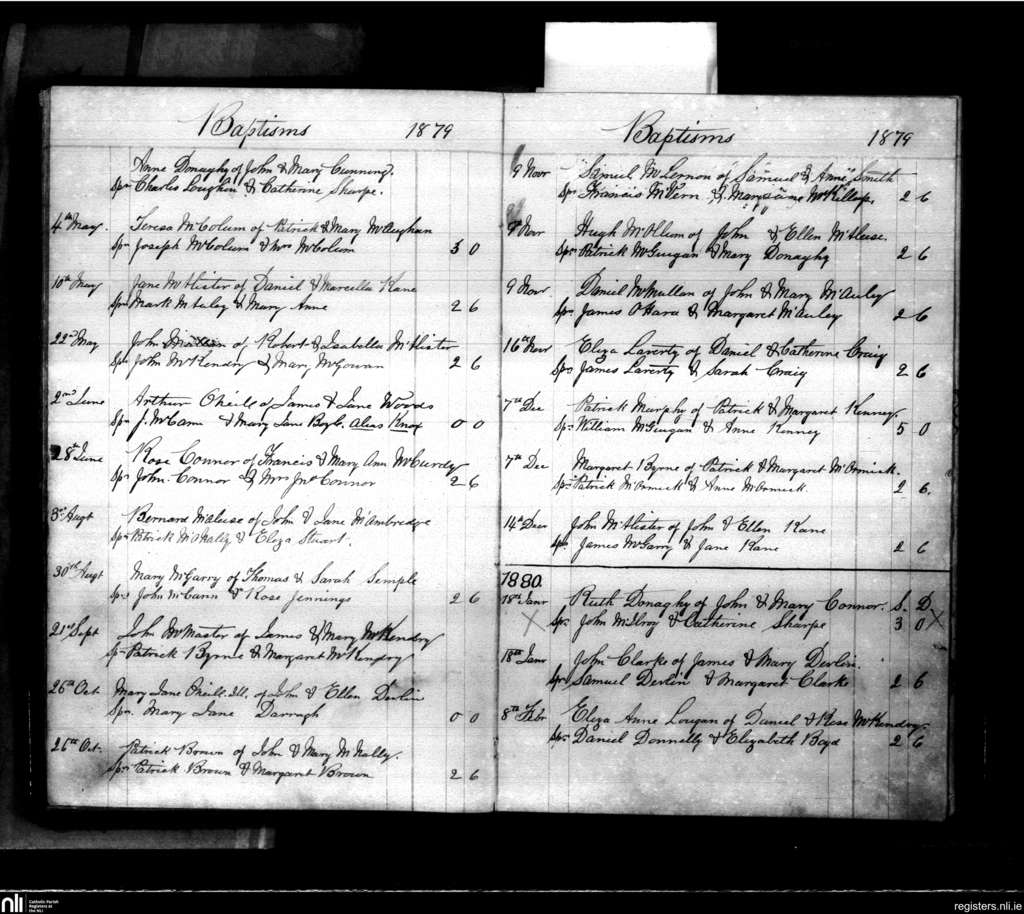 Baptisms 1879
Anne Donaghy of John & Mary Cunning.
Sprs Charles Loughin & Catherine Sharpe.
4th May. Teresa McColum of Patrick & Mary McAughan
Sp. Joseph McColum & Mrs McColum 3 0
10th May Jane McAlister of Daniel & Marcella Kane
Sprs Mark & Mary Anne 2 6
22nd May John of Robert & Isabella McAlister
Sp. John McKendry & Mary McGowan 2 6
2nd June Arthur Oneill of James & Jane Woods
Sp. J. McCann & Mary Jane Boyle Alias Knox 0 0
28th June Rose Connor of Francis & Mary Ann McCurdy
Sprs John Connor & Mrs Jno Connor 2 6
3rd Augt Bernard McAleese of John & Jane McCambridge
Sprs Patrick & Eliza Stuart.
30th Augt Mary McGarry of Thomas & Sarah Semple
Sprs John McCann & Rose Jennings 2 6
21st Sept John McMaster of James & Mary McKendry
Sp. Patrick Byrne & Margaret McKendry
26th Oct Mary Jane Oneill. Ill. of John & Ellen Devlin
Spr. Mary Jane Darragh 0 0
26th Oct. Patrick Brown of John & Mary McNally.
Sprs Patrick Brown & Margaret Brown 2 6
Baptisms 1879
9 Novr Samuel McLernon of Samuel & Anne Smith
Sprs Francis & Mary Jane McKillop. 2 6
9 Novr Hugh McCollum of John & Ellen McAleese.
Sprs Patrick McGuigan & Mary Donaghy 2 6
9 Novr Daniel McMullan of John & Mary McAuley
Sprs James O'Hara & Margaret McAuley 2 6
16th Novr Eliza Laverty of Daniel & Catherine Craig
Sprs James Laverty & Sarah Craig 2 6
7th Dec Patrick Murphy of Patrick & Margaret Kenney.
Sprs William McGuigan & Anne Kenney 5 0
7th Dec Margaret Byrne of Patrick & Margaret McCormick.
Sprs Patrick McCormick & Anne McCormick. 2 6.
14th Dec John McAlister of John & Ellen Kane
Sprs James McGarry & Jane Kane 2 6
1880.
18th Janr Ruth Donaghy of John & Mary Connor. S. D
X Sprs John McIlroy & Catherine Sharpe 3 0 X
18th Janr John Clarke of James & Mary Devlin.
Sprs Samuel Devlin & Margaret Clarke 2 6
8th Febr Eliza Anne Lougan of Daniel & Rose McKendry.
Sprs Daniel Donnelly & Elizabeth Boyd 2 6
nli
Catholic Parish
Registers at
the NLI
registers.nli.ie